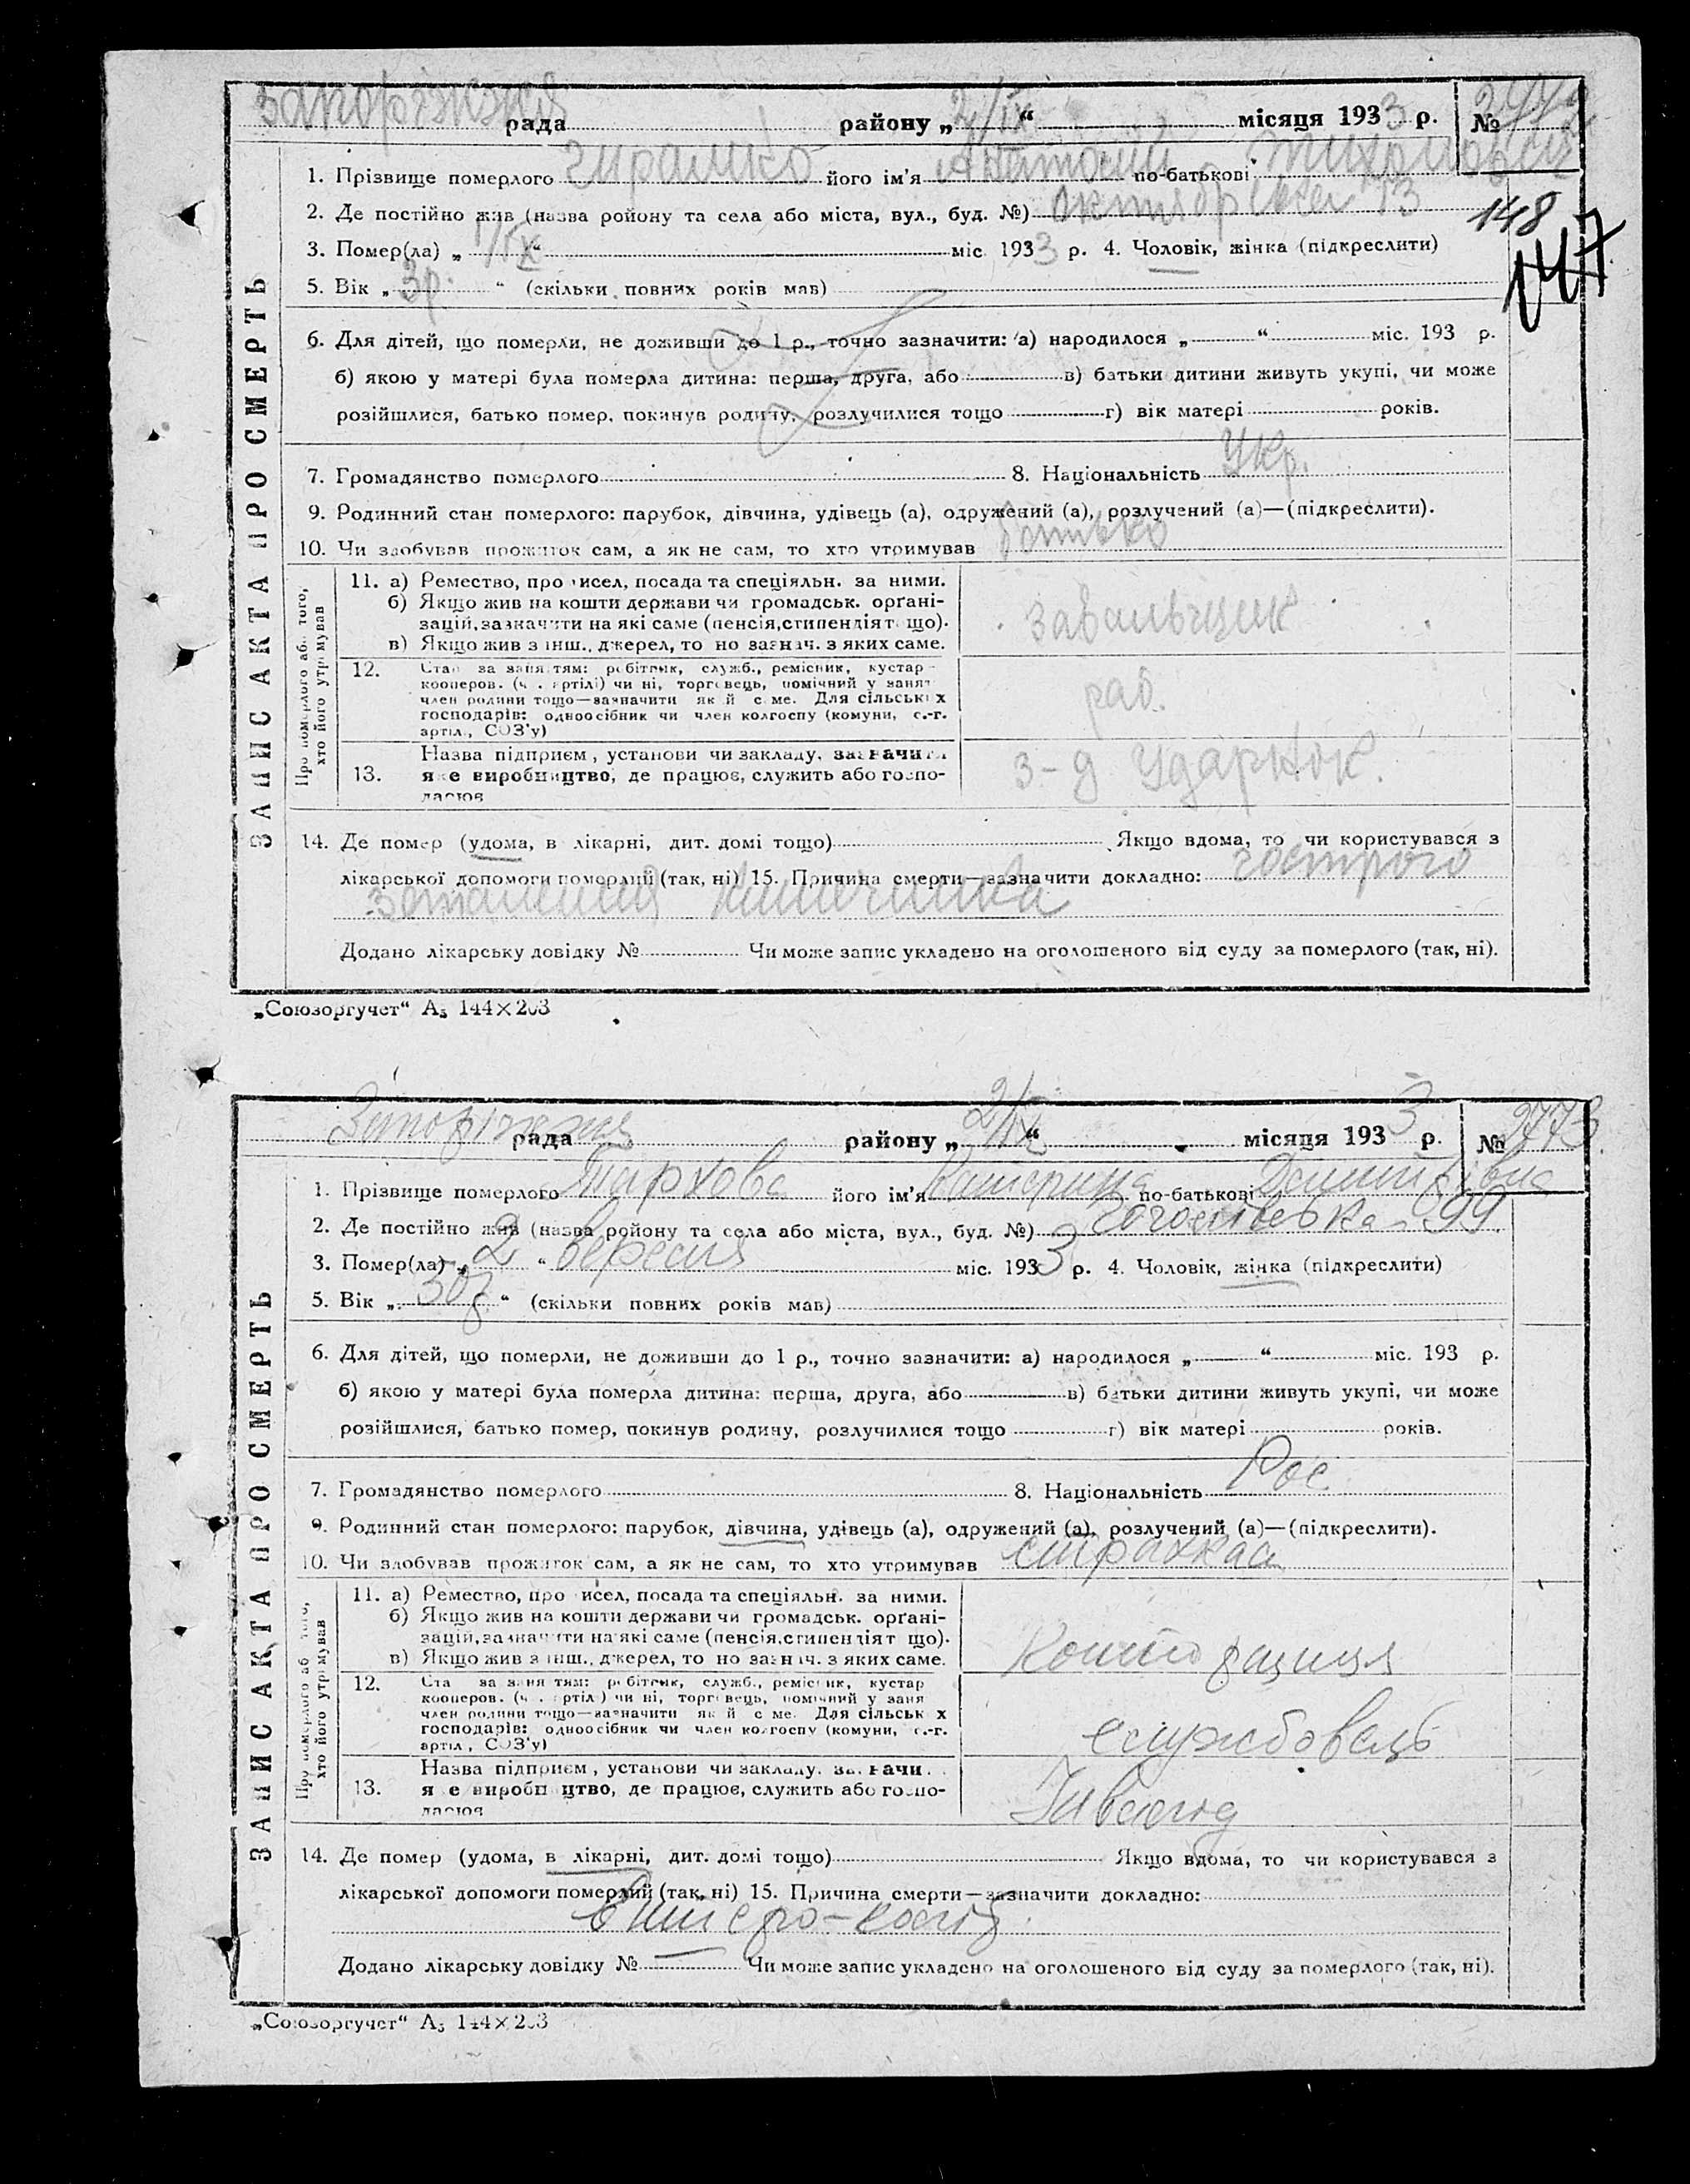 ЗАПИС АКТА ПРО СМЕРТЬ
Запоріжжя рада району „ 2/IX “ місяця 1933 р. №
1. Прізвище померлого його ім'я по-батькові
2. Де постійно жив (назва ройону та села або міста, вул., буд. №) 13
148
3. Помер(ла) „ 1/IX “ міс. 1933 р. 4. Чоловік, жінка (підкреслити)
147
5. Вік „ 3р. “ (скільки повних років мав)
6. Для дітей, що померли, не доживши до 1 р., точно зазначити: а) народилося „ “ міс. 193 р.
б) якою у матері була померла дитина: перша, друга, або в) батьки дитини живуть укупі, чи може
розійшлися, батько помер, покинув родину, розлучилися тощо г) вік матері років.
7. Громадянство померлого 8. Національність Укр.
9. Родинний стан померлого: парубок, дівчина, удівець (а), одружений (а), розлучений (а)—(підкреслити).
10. Чи здобував прожиток сам, а як не сам, то хто утримував батько
Про померлого або того, хто його утримував
11. а) Ремество, про исел, посада та спеціяльн. за ними.
б) Якщо жив на кошти держави чи громадськ. орґані-
зацій, зазначити на які саме (пенсія, стипендія т що).
в) Якщо жив з інш. джерел, то но зазнач. з яких саме.
завальщик
12. Стан за заняттям: робітник, служб., ремісник, кустар
кооперов. (ч. артілі) чи ні, торговець, помічний у занят
член родини тощо—зазначити який саме. Для сільських
господарів: одноосібник чи член колгоспу (комуни, с.-г.
артіл., СОЗ'у)
раб.
13. Назва підприєм, установи чи закладу, зазначити
яке виробництво, де працює, служить або госпо-
дарює
з-д Ударник.
14. Де помер (удома, в лікарні, дит. домі тощо) Якщо вдома, то чи користувався з
лікарської допомоги померлий (так, ні) 15. Причина смерти—зазначити докладно: гострого
запалення кишечника
Додано лікарську довідку № Чи може запис укладено на оголошеного від суду за померлого (так, ні).
„Союзоргучет“ А₅ 144×203
ЗАПИС АКТА ПРО СМЕРТЬ
Запоріжжя рада району „ 2/IX “ місяця 1933 р. № 2773
1. Прізвище померлого Тархова його ім'я Катерина по-батькові
2. Де постійно жив (назва ройону та села або міста, вул., буд. №) 99
3. Помер(ла) „ 2 “ вересня міс. 1933 р. 4. Чоловік, жінка (підкреслити)
5. Вік „ 30р. “ (скільки повних років мав)
6. Для дітей, що померли, не доживши до 1 р., точно зазначити: а) народилося „ “ міс. 193 р.
б) якою у матері була померла дитина: перша, друга, або в) батьки дитини живуть укупі, чи може
розійшлися, батько помер, покинув родину, розлучилися тощо г) вік матері років.
7. Громадянство померлого 8. Національність Рос
9. Родинний стан померлого: парубок, дівчина, удівець (а), одружений (а), розлучений (а)—(підкреслити).
10. Чи здобував прожиток сам, а як не сам, то хто утримував страхкаса
Про померлого або того, хто його утримував
11. а) Ремество, про исел, посада та спеціяльн. за ними.
б) Якщо жив на кошти держави чи громадськ. орґані-
зацій, зазначити на які саме (пенсія, стипендія т що).
в) Якщо жив з інш. джерел, то но зазнач. з яких саме.
12. Стан за заняттям: робітник, служб., ремісник, кустар
кооперов. (ч. артіл) чи ні, торговець, помічний у заня
член родини тощо—зазначити який саме. Для сільських
господарів: одноосібник чи член колгоспу (комуни, с.-г.
артіл., СОЗ'у)
службовець
13. Назва підприєм, установи чи закладу, зазначи
яке виробництво, де працює, служить або госпо-
дарює
14. Де помер (удома, в лікарні, дит. домі тощо) Якщо вдома, то чи користувався з
лікарської допомоги померлий (так, ні) 15. Причина смерти—зазначити докладно:
ентеро-коліт
Додано лікарську довідку № — Чи може запис укладено на оголошеного від суду за померлого (так, ні).
„Союзоргучет“ А₅ 144×203